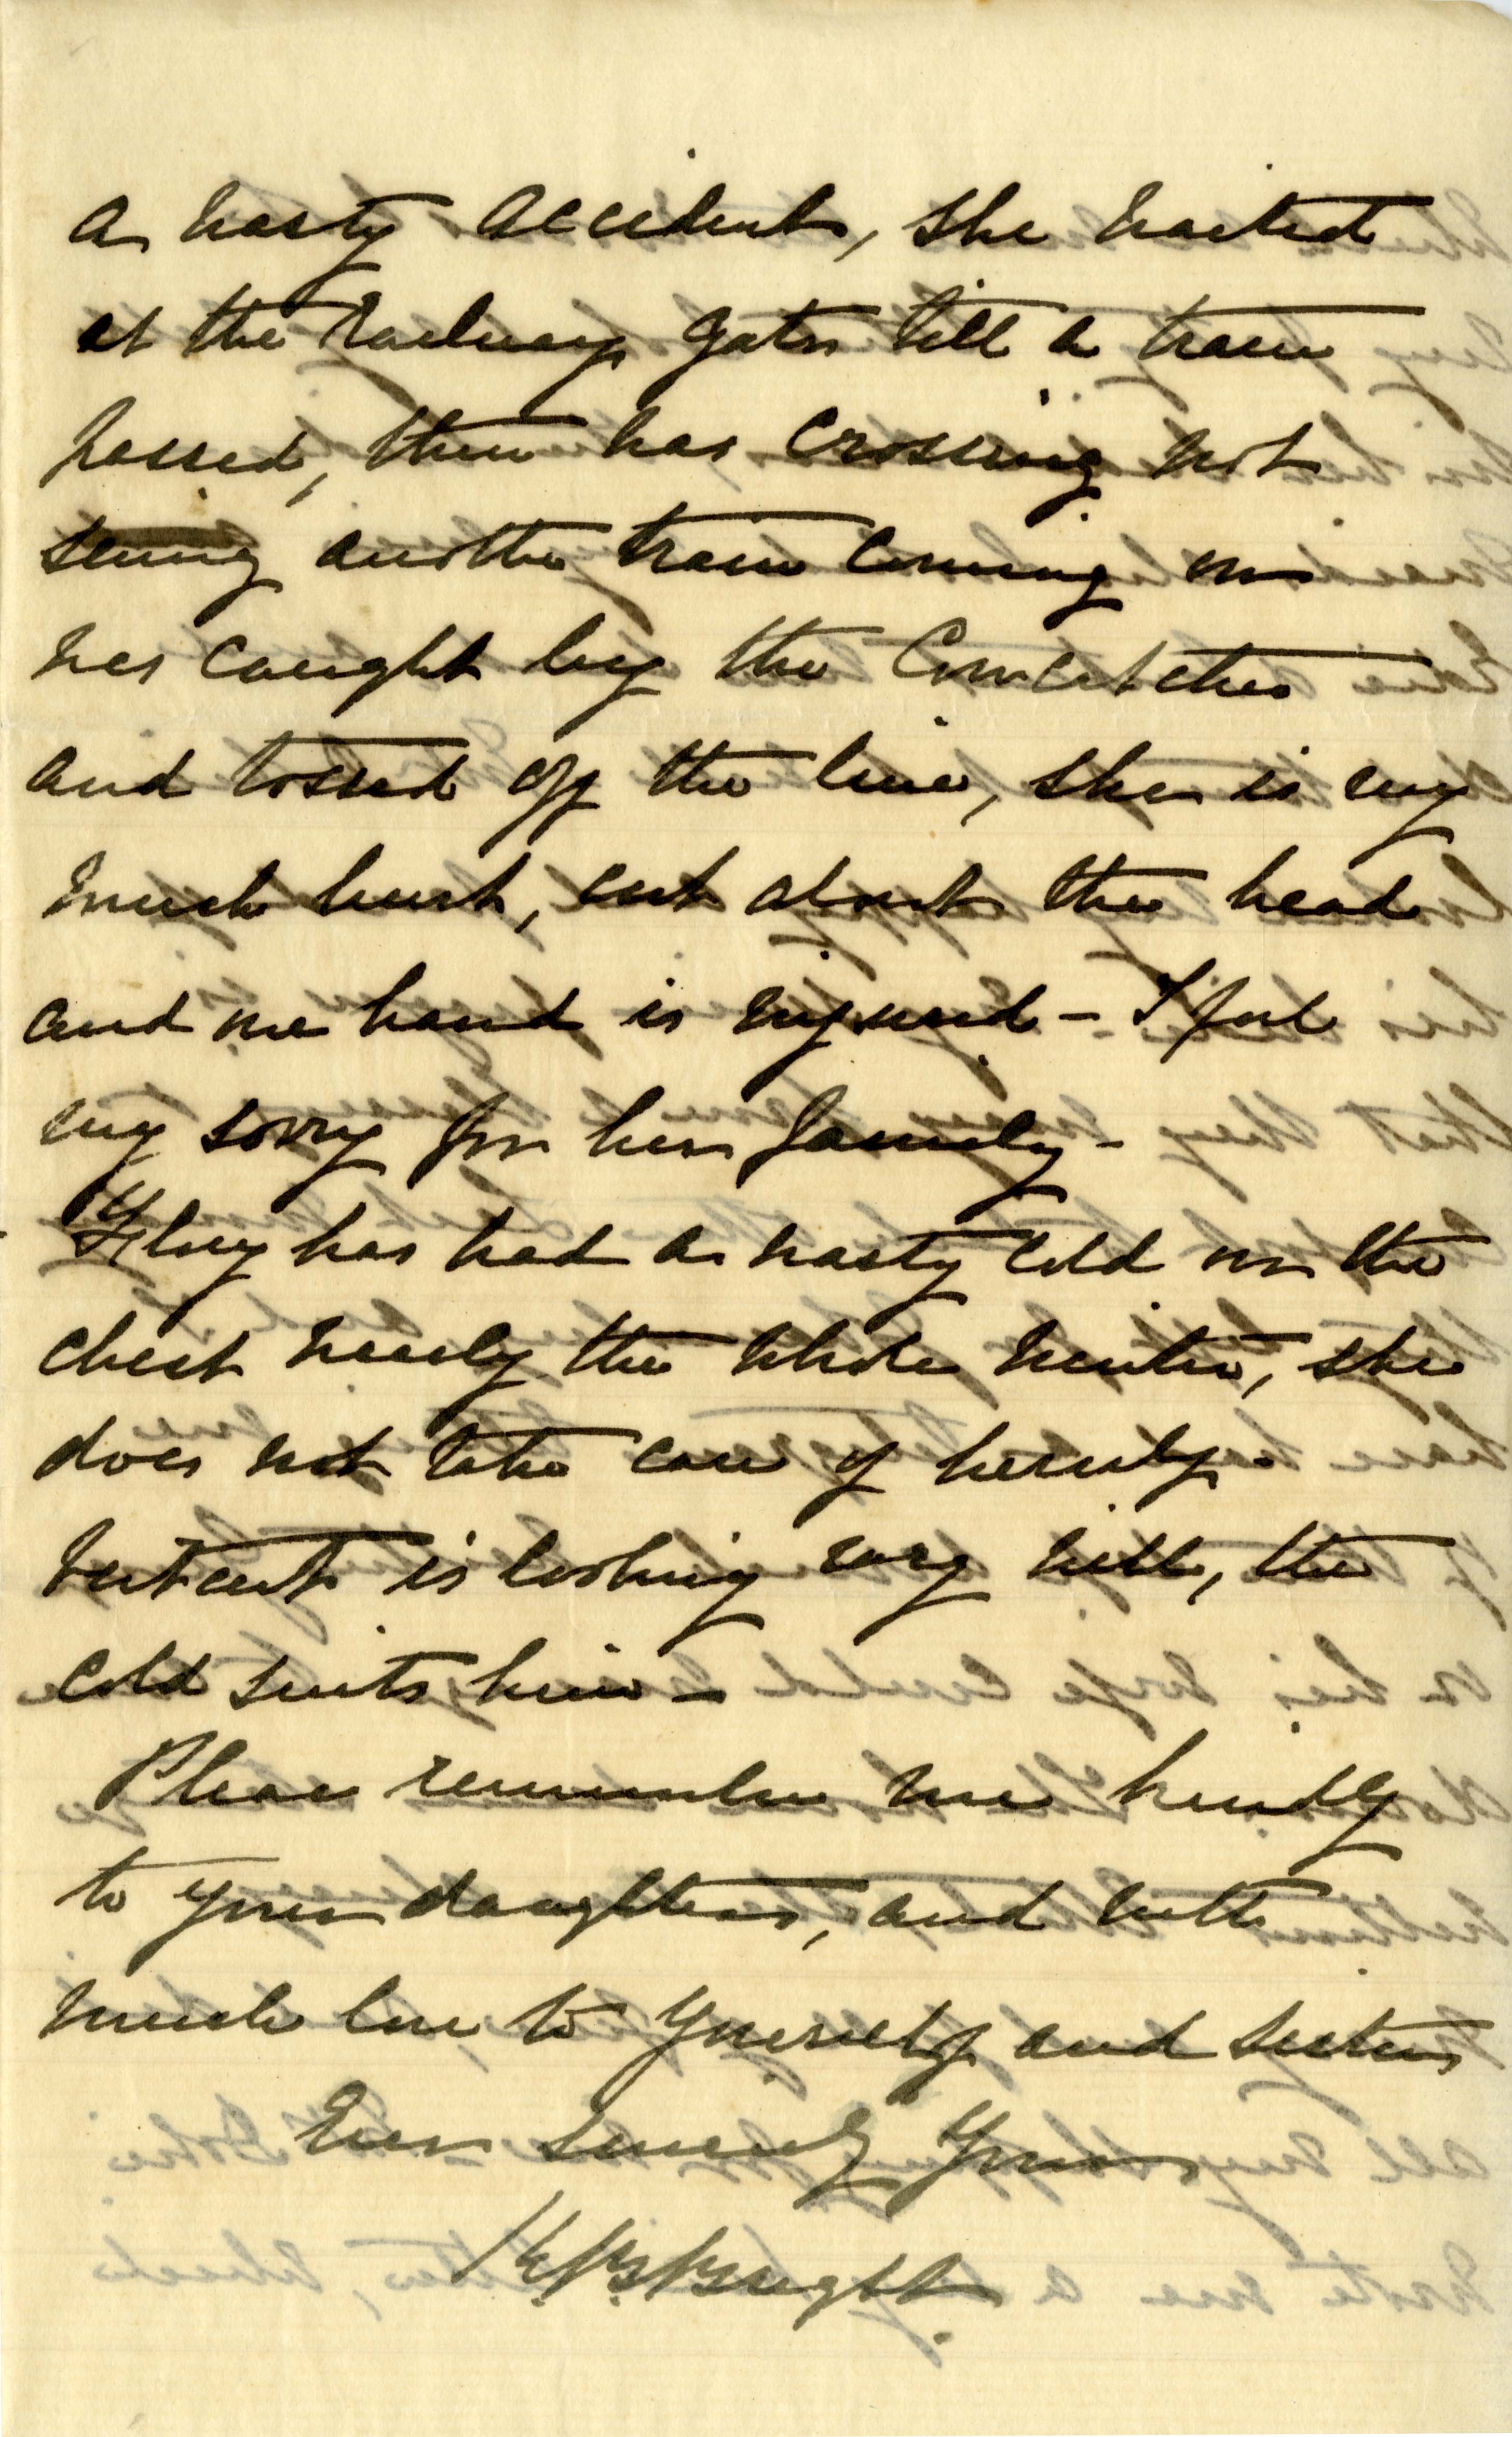 a nasty accident, she waited
at the railway gates till a train
passed, then was crossing not
seeing another train coming in
was caught by the Cowcatcher
and tossed off the line, she is very
much hurt, cut about the head
and one hand is injured - I feel
very sorry for her family -
has had a nasty cold on the
chest nearly the whole winter, she
does not take care of herself.
is looking very well, the
cold suits him -
Please remember me kindly
to your daughters, and with
much love to yourself and sisters
Ever Sincerely Yours
Wright.